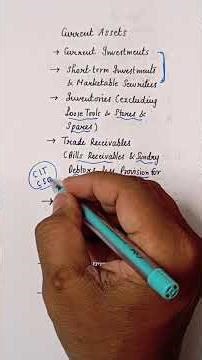 Current Assets
→ Current Investments
→ Short-term Investments
& Marketable Securities
→ Inventories (excluding
Loose Tools & Stores &
Spares)
→ Trade Receivables
(Bills Receivables & Sundry
Debtors less Provision for
CIT
→